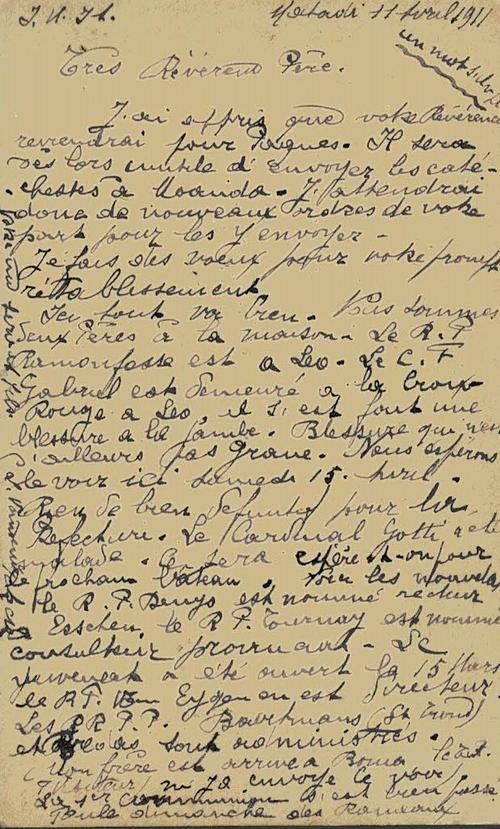 J.M.Jh.
Matadi 11 Avril 1911
un mot s.v.p.
Très Révérend Père.
J'ai appris que votre Révérence
reviendrai pour Pâques. Il sera
dès lors inutile d'envoyer les caté-
chistes à Loanda. J'attendrai
donc de nouveaux ordres de votre
part pour les y envoyer.
Je fais des vœux pour votre prompt
rétablissement
Ici tout va bien. Nous sommes
deux Pères à la maison. Le R. P
est a Leo. Le C. F
Gabriel est demeuré a la Croix
Rouge a Leo, il s'est fait une
blessure a la jambe. Blessure qui n'est
d'ailleurs pas grave. Nous espérons
le voir ici samedi 15. Avril.
Rien de bien pour la
Préfecture. Le Cardinal Gotti a été
malade. Ce sera espère-t-on pour
le prochain bâteau. Voici les nouvelles
le R. P. Denys est nommé recteur
Esschen, le R P. Tournay est nommé
consulteur provincial. Le
juvénat a été ouvert le 15 Mars
le R P. Van Eygen en est directeur
Les RR. P.P. Baertmans (St Trond)
et Nicolas sont administrés.
Mon frère est arrivé a Boma
m'a envoyé le voir
La 1re Communion s'est bien passée
dimanche des Rameaux